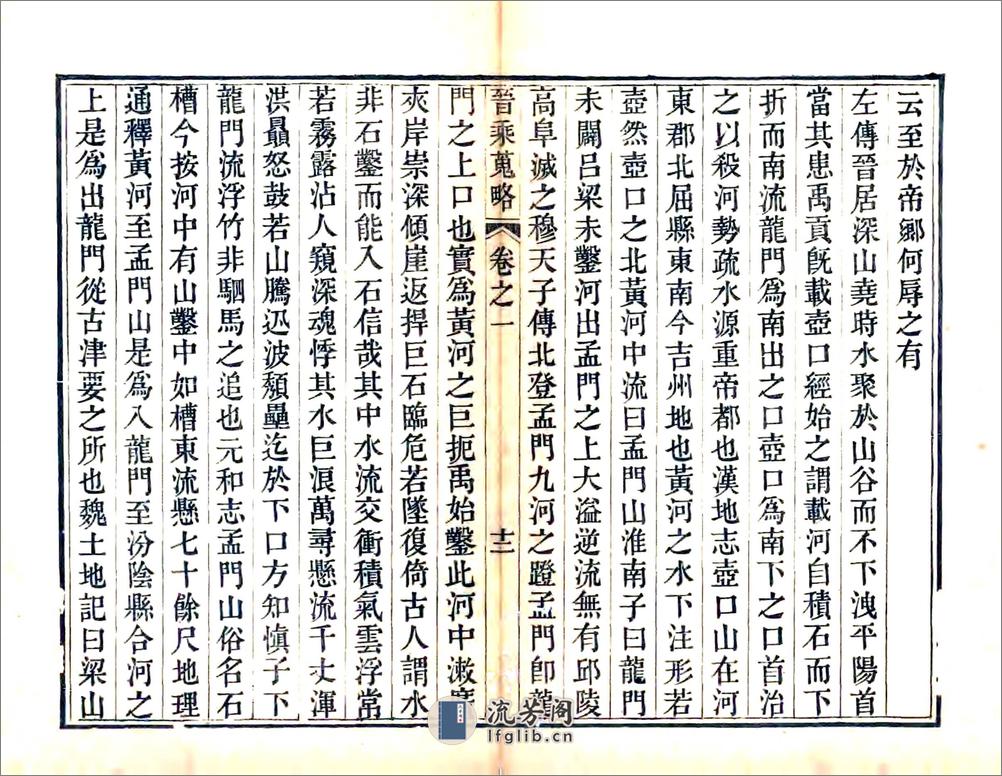 云至於帝鄉何辱之有
左傳晉居深山堯時水聚於山谷而不下洩平陽首
當其患禹貢旣載壺口經始之謂載河自積石而下
折而南流龍門爲南出之口壺口爲南下之口首治
之以殺河勢疏水源重帝都也漢地志壺口山在河
東郡北屈縣東南今吉州地也黃河之水下注形若
壺然壺口之北黃河中流曰孟門山淮南子曰龍門
未闢呂梁未鑿河出孟門之上大溢逆流無有邱陵
高阜滅之穆天子傳北登孟門九河之蹬孟門卽龍
晉乘蒐略 卷之一 十二
門之上口也實爲黃河之巨扼禹始鑿此河中漱廣
夾岸崇深傾崖返捍巨石臨危若墜復倚古人謂水
非石鑿而能入石信哉其中水流交衝積氣雲浮常
若霧露沾人窺深魂悸其水巨浪萬尋懸流千丈渾
洪贔怒鼓若山騰迅波頹壘迄於下口方知慎子下
龍門流浮竹非駟馬之追也元和志孟門山俗名石
槽今按河中有山鑿中如槽東流懸七十餘尺地理
通釋黃河至孟門山是爲入龍門至汾陰縣合河之
上是爲出龍門從古津要之所也魏土地記曰梁山
流芳阁
lfglib.cn